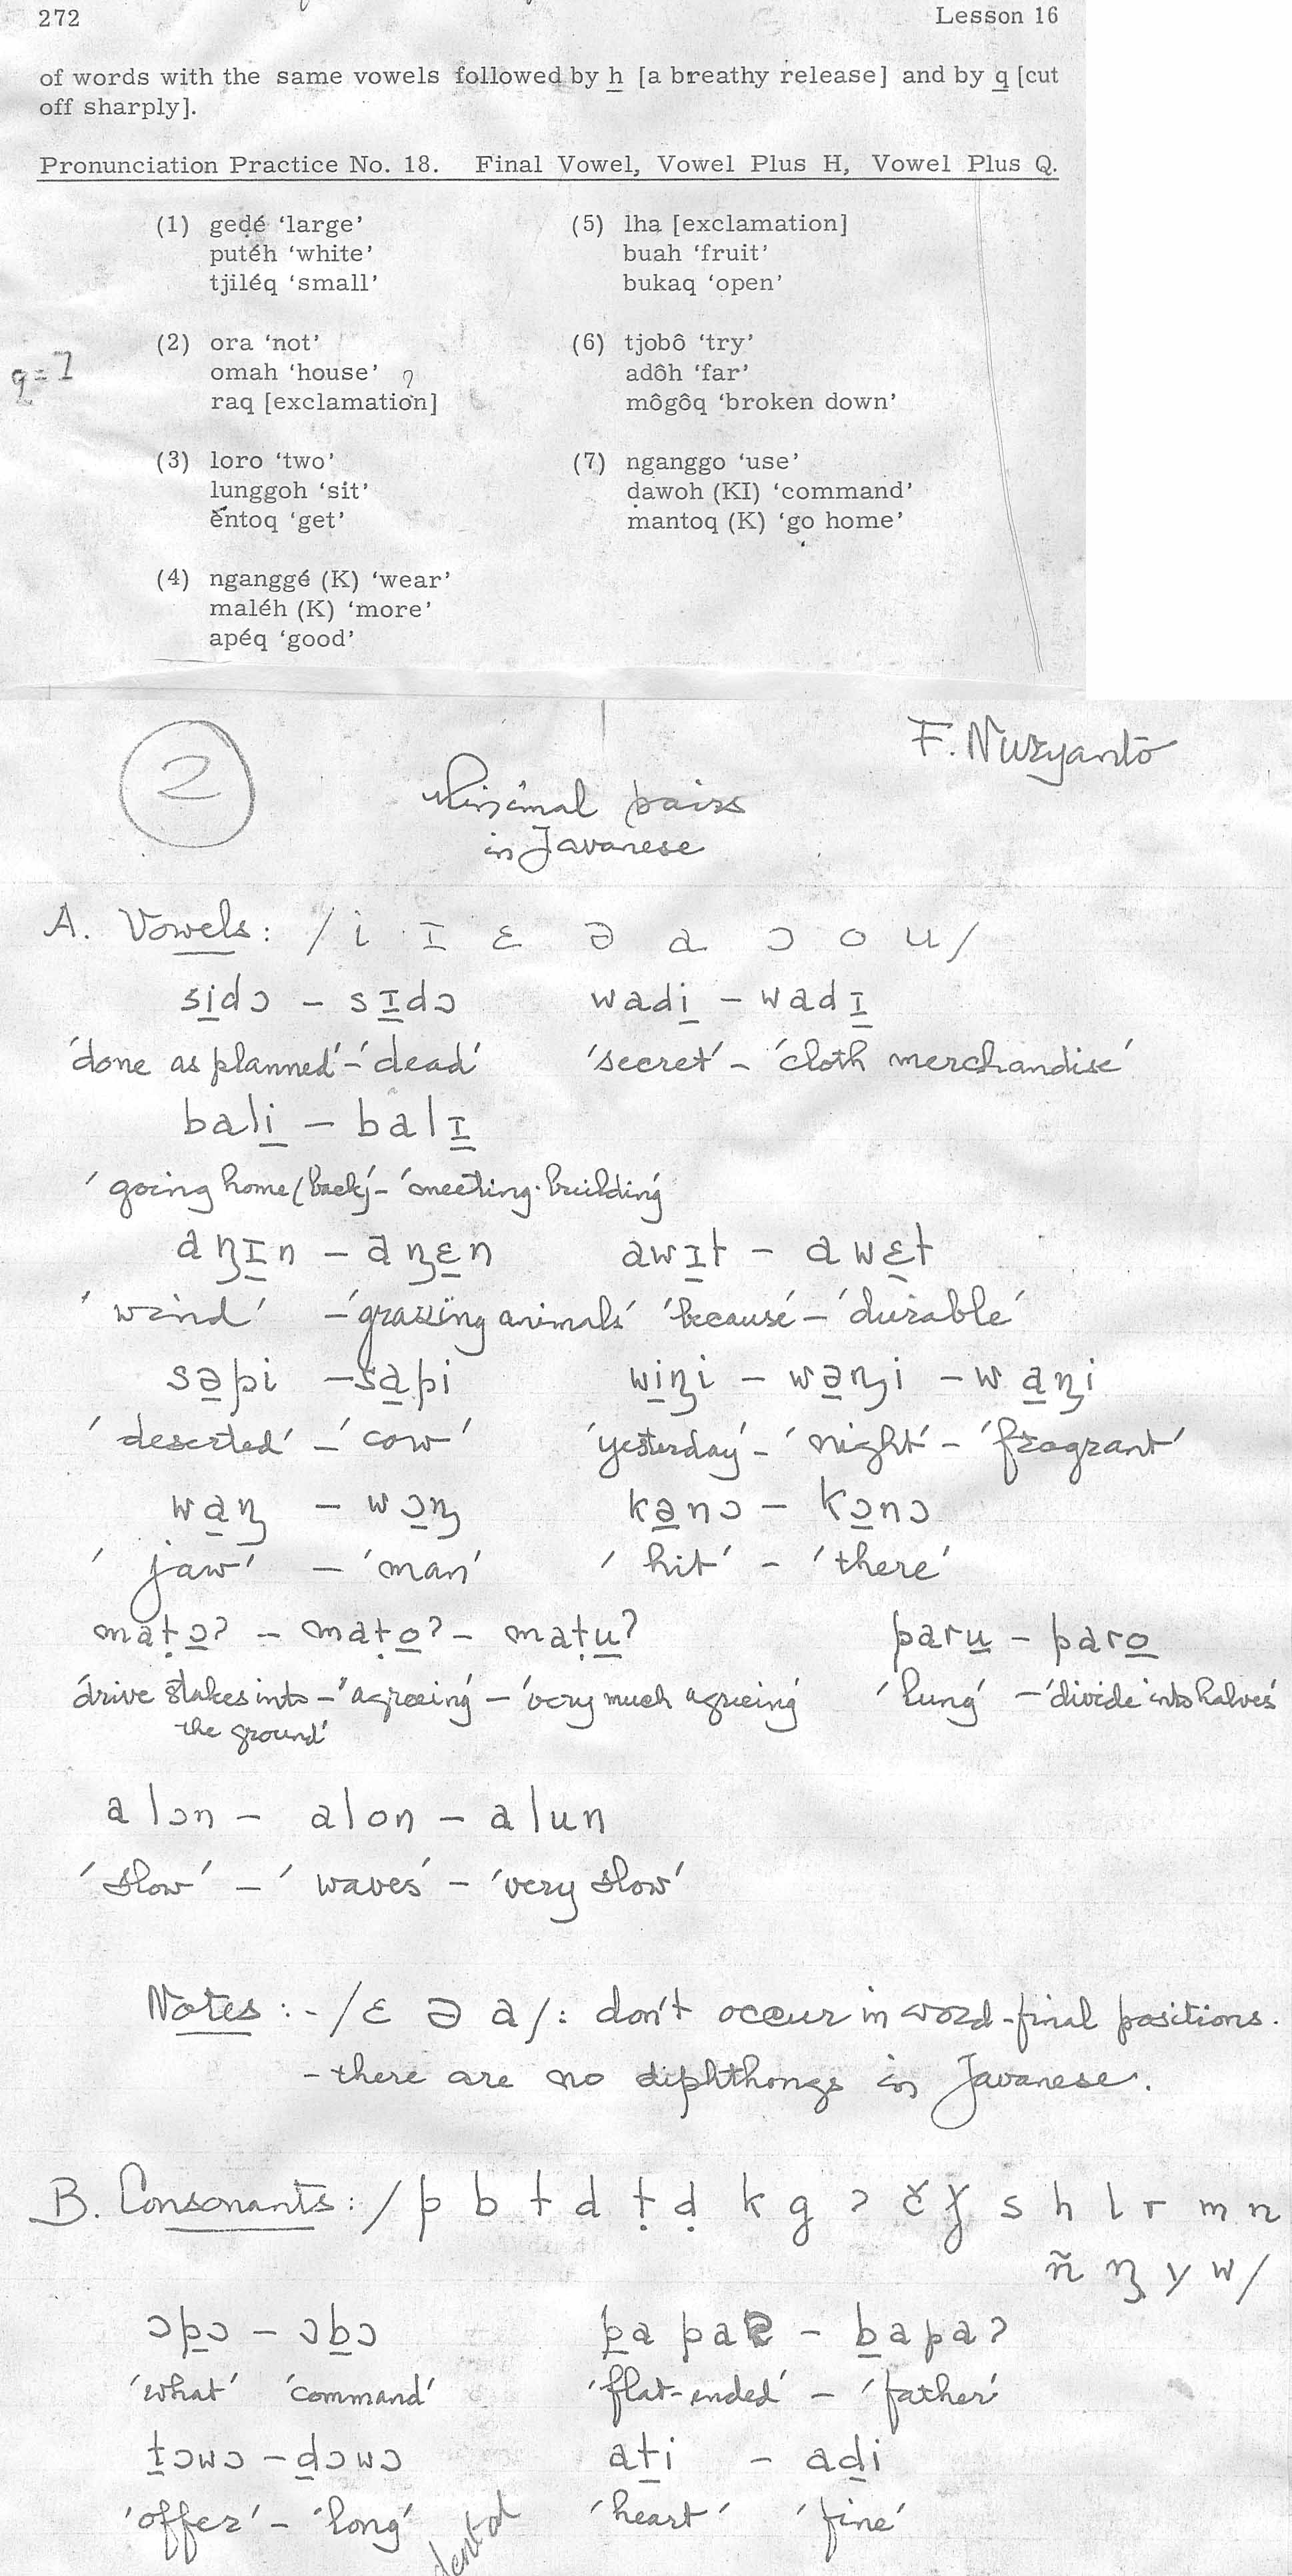 272 Lesson 16
of words with the same vowels followed by h [a breathy release] and by q [cut
off sharply].
Pronunciation Practice No. 18. Final Vowel, Vowel Plus H, Vowel Plus Q.
(1) geḍé ‘large’
putéh ‘white’
tjiléq ‘small’
(2) ora ‘not’
omah ‘house’
raq [exclamation]
(3) loro ‘two’
lunggoh ‘sit’
ěntoq ‘get’
(4) nganggé (K) ‘wear’
maléh (K) ‘more’
apéq ‘good’
(5) lha [exclamation]
buah ‘fruit’
bukaq ‘open’
(6) tjobô ‘try’
adôh ‘far’
môgôq ‘broken down’
(7) nganggo ‘use’
ḍawoh (KI) ‘command’
mantoq (K) ‘go home’
q = ʔ
2
F. Nuryanto
Minimal pairs
in Javanese
A. Vowels: / i ɪ ɛ ə a ɔ o u /
sidɔ – sɪdɔ wadi – wadɪ
'done as planned' – 'dead' 'secret' – 'cloth merchandise'
bali – balɪ
'going home (back)' – 'meeting-building'
aŋɪn – aŋɛn awɪt – awɛt
'wind' – 'grazing animals' 'because' – 'durable'
səpi – sapi wiŋi – wəŋi – waŋi
'deserted' – 'cow' 'yesterday' – 'night' – 'fragrant'
waŋ – wɔŋ kənɔ – kɔnɔ
'jaw' – 'man' 'hit' – 'there'
maṭɔʔ – maṭoʔ – maṭuʔ paru – paro
'drive stakes into – 'agreeing' – 'very much agreeing' 'lung' – 'divide into halves'
the ground'
alɔn – alon – alun
'slow' – 'waves' – 'very slow'
Notes: - /ɛ ə a/: don't occur in word-final positions.
- there are no diphthongs in Javanese.
B. Consonants: / p b t d ṭ ḍ k g ʔ č ǰ s h l r m n
ñ ŋ y w /
ɔpɔ – ɔbɔ papak – bapaʔ
'what' 'command' 'flat-ended' – 'father'
tɔwɔ – dɔwɔ ati – adi
'offer' – 'long' 'heart' 'fine'
dental